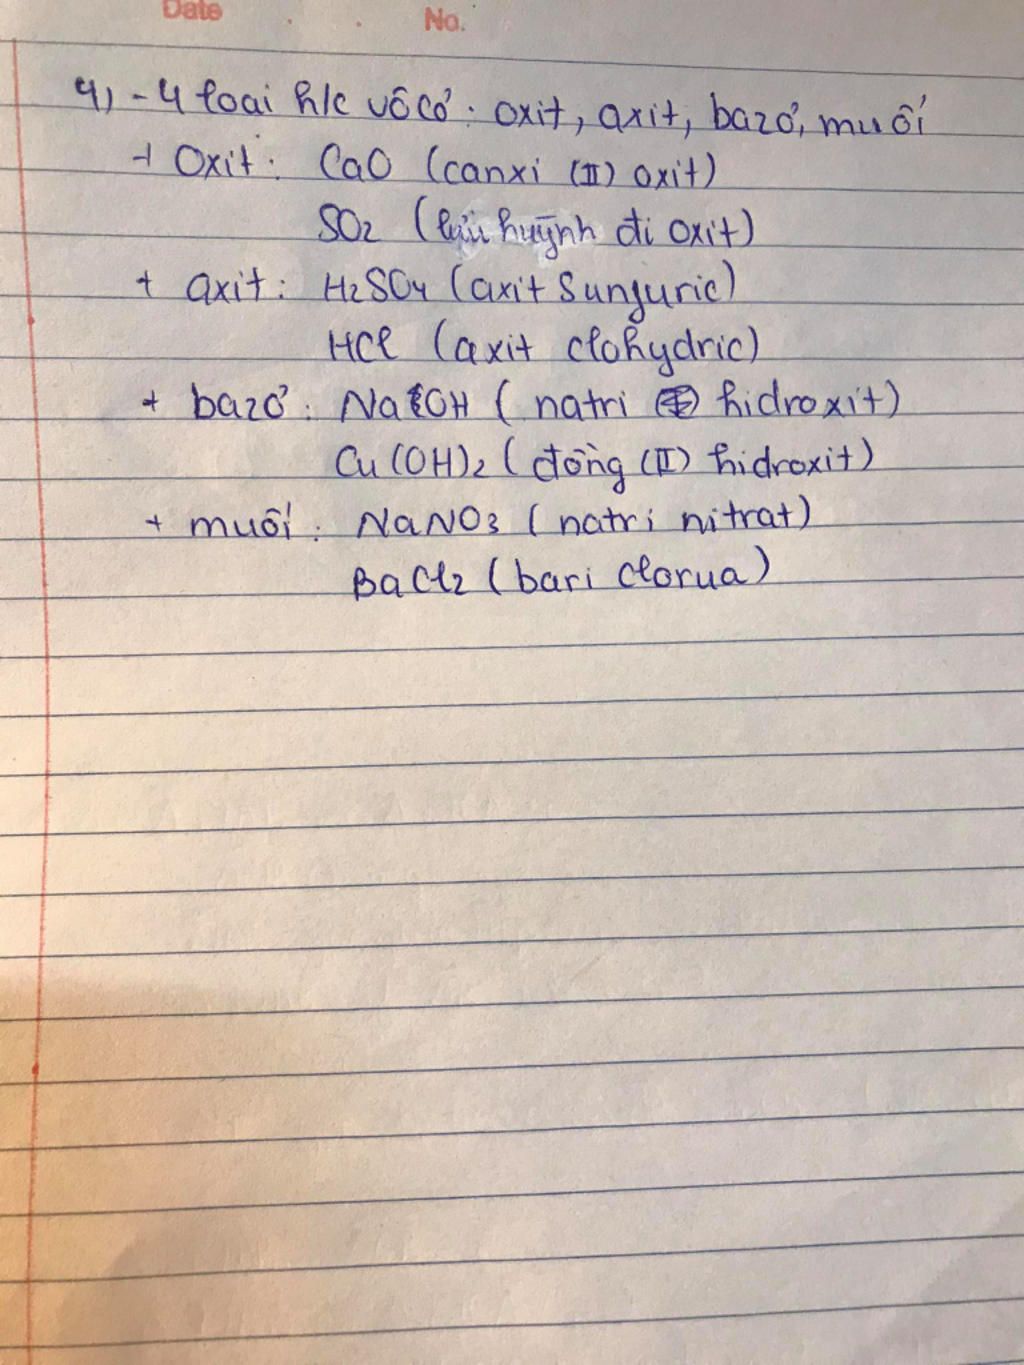 Date No.
4) - 4 loại h/c vô cơ: oxit, axit, bazơ, muối
+ Oxit: CaO (canxi (II) oxit)
SO2 (lưu huỳnh đi oxit)
+ axit: H2SO4 (axit Sunfuric)
HCl (axit clohydric)
+ bazơ: NaOH (natri hidroxit)
Cu(OH)2 (đồng (II) hidroxit)
+ muối: NaNO3 (natri nitrat)
BaCl2 (bari clorua)